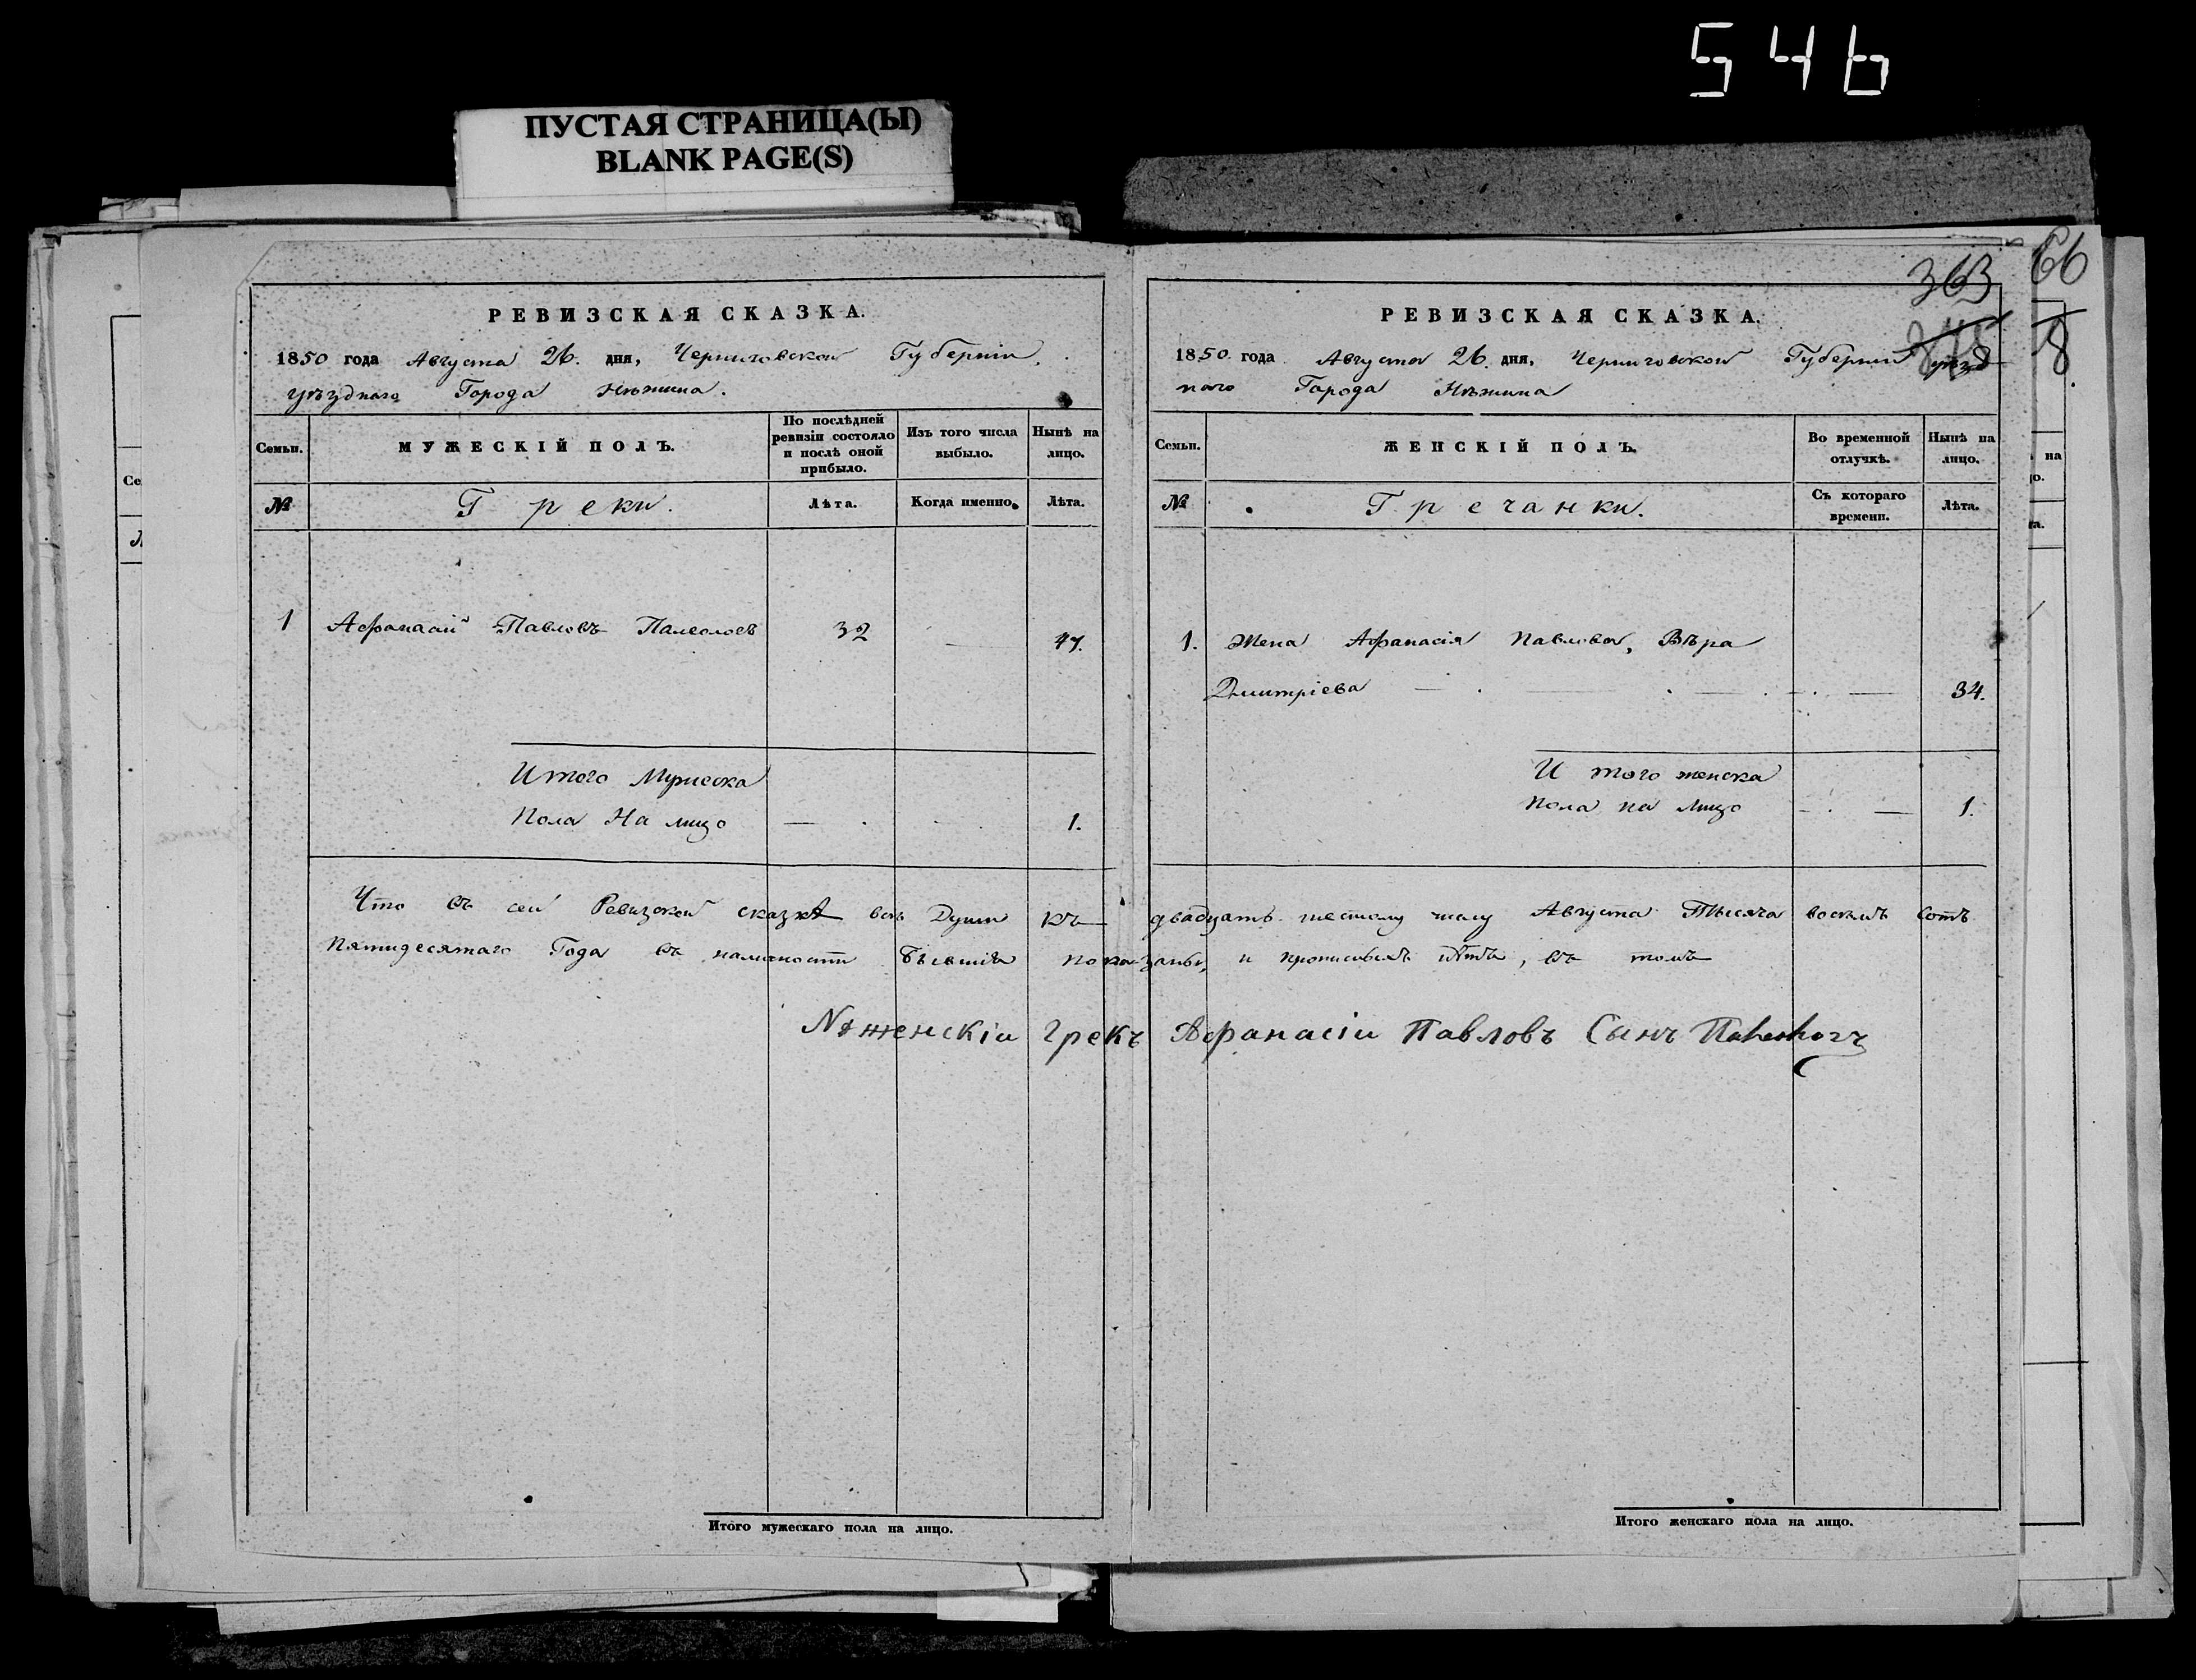 546
ПУСТАЯ СТРАНИЦА(Ы)
BLANK PAGE(S)
РЕВИЗСКАЯ СКАЗКА.
1850 года Августа 26. дня, Черниговской Губернiи,
уѣзднаго Города Нѣжина.
Семьи.
МУЖЕСКІЙ ПОЛЪ.
По послѣдней ревизіи состояло и послѣ оной прибыло.
Изъ того числа выбыло.
Нынѣ на лицо.
№
Греки.
Лѣта.
Когда именно.
Лѣта.
1 Афанасий Павловъ Палеологъ 32 — 47.
Итого Мужеска
Пола На лицо — 1.
363
66
8
РЕВИЗСКАЯ СКАЗКА.
1850. года Августа 26. дня, Черниговской Губерніи уѣзд
наго Города Нѣжина
Семьи.
ЖЕНСКІЙ ПОЛЪ.
Во временной отлучкѣ.
Нынѣ на лицо.
№
Гречанки.
Съ котораго времени.
Лѣта.
1. Жена Афанасія Павлова, Вѣра
Дмитріева — 34.
И того женска
Пола на лицо — 1.
Что въ сей Ревизской сказкѣ всѣ Души къ двадцать шестому числу Августа Тысяча восемь сотъ
Пятидесятаго Года въ наличности бывшія показаны, и прописныхъ нѣтъ, въ томъ
Нѣженскіи Грекъ Афанасіи Павловъ Сынъ Палеологъ
Итого мужескаго пола на лицо.
Итого женскаго пола на лицо.